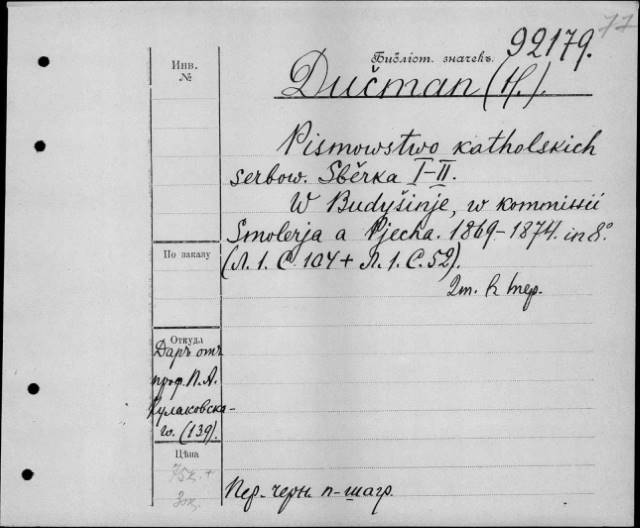 77
Инв.
№
Библіот. значекъ.
92179.
Dučman (H.).
Pismowstwo katholskich
serbow. Sběrka I-II.
W Budyšinje, w kommissii
Smolerja a Pjecha. 1869-1874. in 8.º
(Л. 1. С. 104 + Л. 1. С. 52).
По заказу
2т. въ пер.
Откуда
Даръ отъ
проф. П. А.
Кулаковска-
го. (139).
Цѣна
75к. +
Пер. черн. п-шагр.